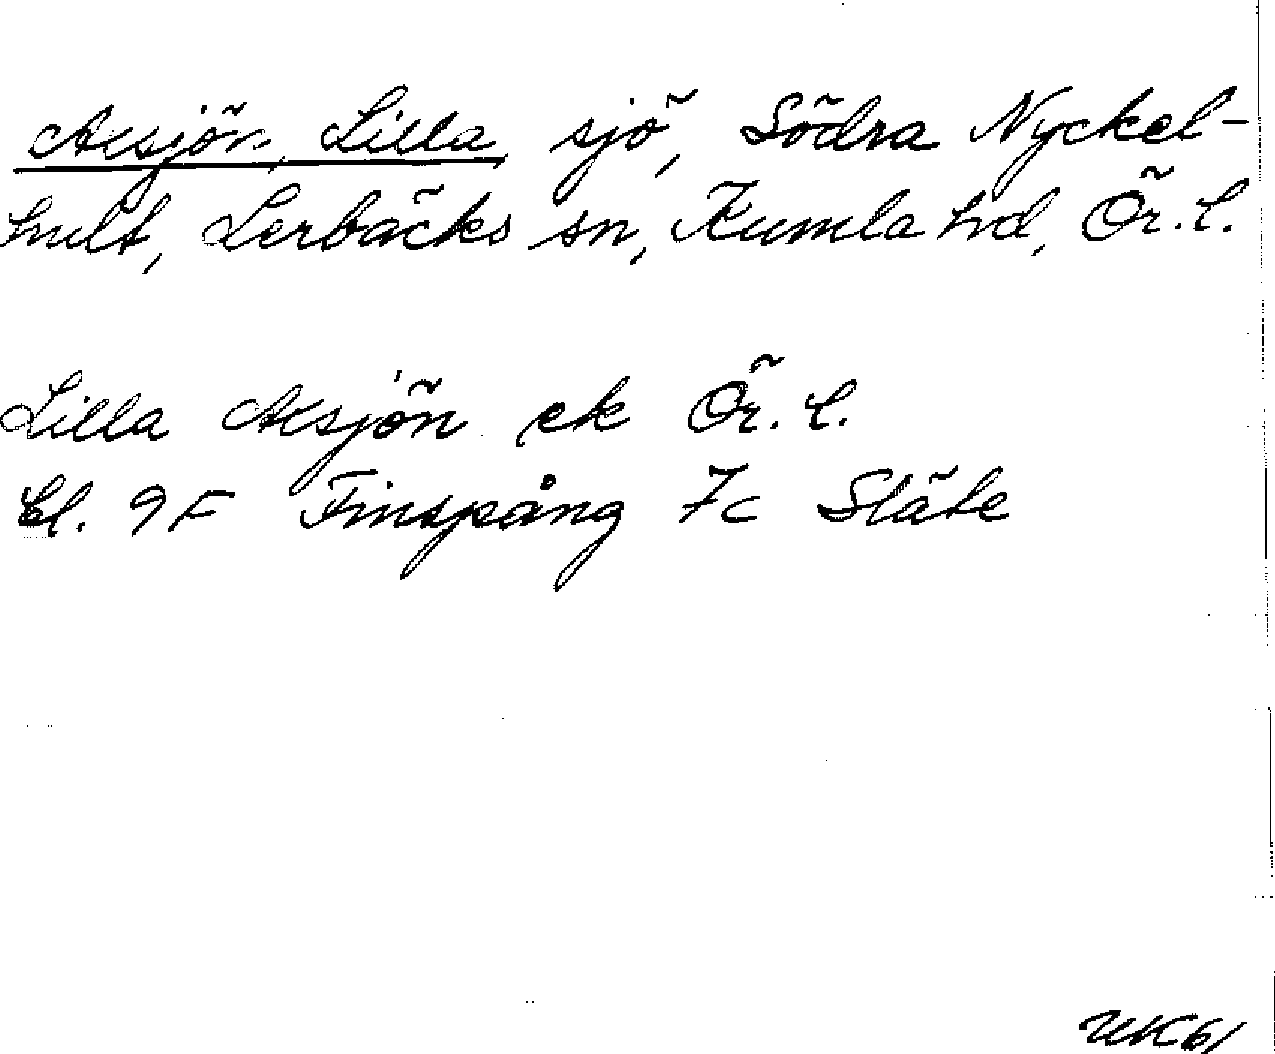 Aksjön, Lilla, sjö, Södra Nyckel-
hult, Lerbäcks sn, Kumla hd, Ör. l.
Lilla Aksjön ek Ör. l.
bl. 9F Finspång 7c
UK61